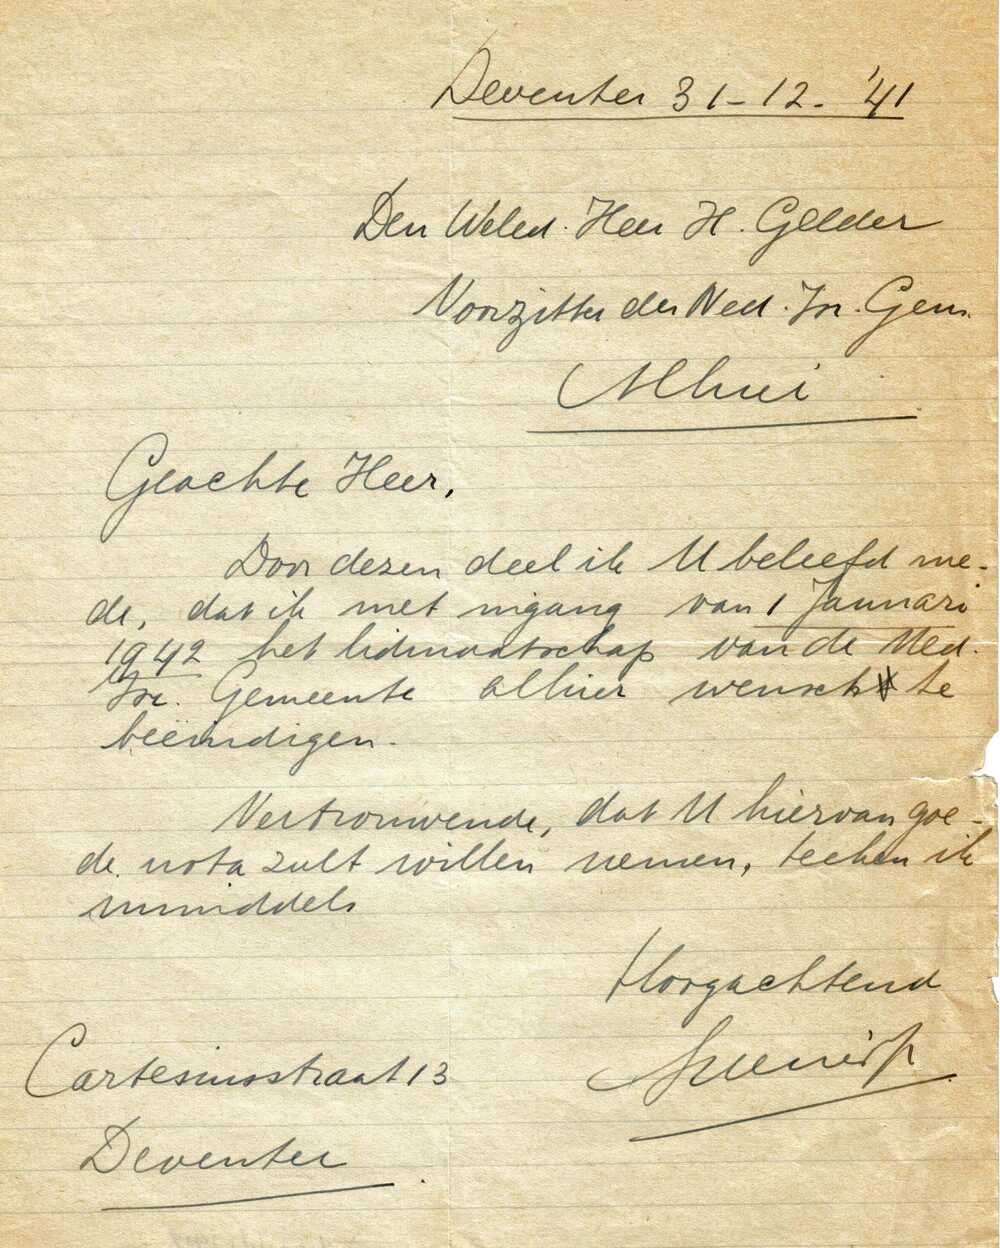 Deventer 31-12-'41
Den Weled. Heer H. Gelder
Voorzitter der Ned. Isr. Gem.
Alhier
Geachte Heer,
Door dezen deel ik U beleefd me-
de, dat ik met ingang van 1 Januari
1942 het lidmaatschap van de Ned.
Isr. Gemeente alhier wensch te
beëindigen.
Vertrouwende, dat U hiervan goe-
de nota zult willen nemen, teeken ik
inmiddels
Hoogachtend
Cartesiusstraat 13
Deventer